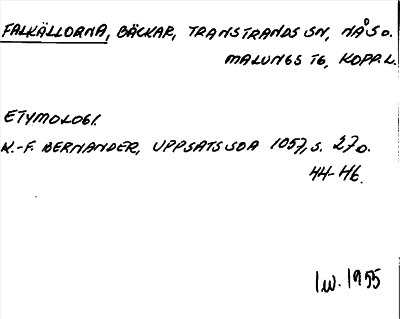 FALKÄLLORNA, BÄCKAR, TRANSTRANDS SN, NÅS O.
MALUNGS TG, KOPP. L.
ETYMOLOGI.
K.-F. BERNANDER, UPPSATS SDA 1057, S. 27 O.
44-46.
Iw. 1955